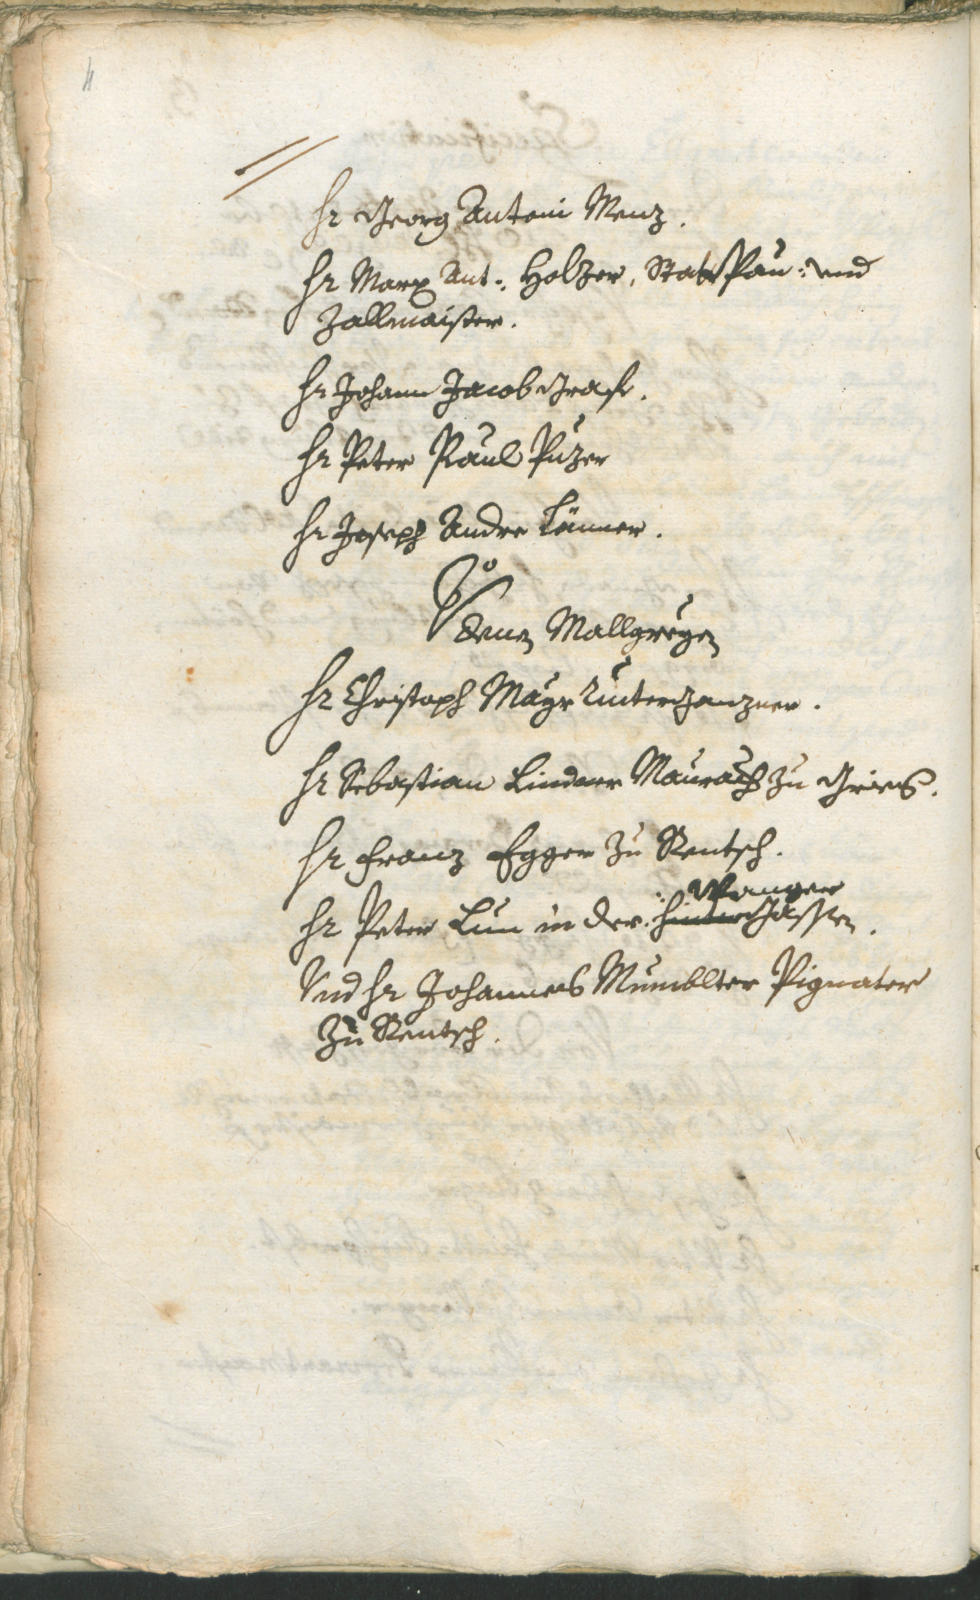 4
Hr Georg Antoni Menz.
Hr Marx Ant: Holzer, Statt Pau: und
Zallmaister.
Hr Johann Jacob Graff.
Hr Peter Paul Puzer
Hr Joseph Andre Tänner.
denen Mallgreyen
Hr Christoph Mayr Unterganzner.
Hr Sebastian Lindner Maurach zu Gries.
Hr Franz Egger zu Rentsch.
Wanger
Hr Peter Lun in der hinter Gassen.
Und Hr Johannes Mumblter Pignater
Zu Rentsch.